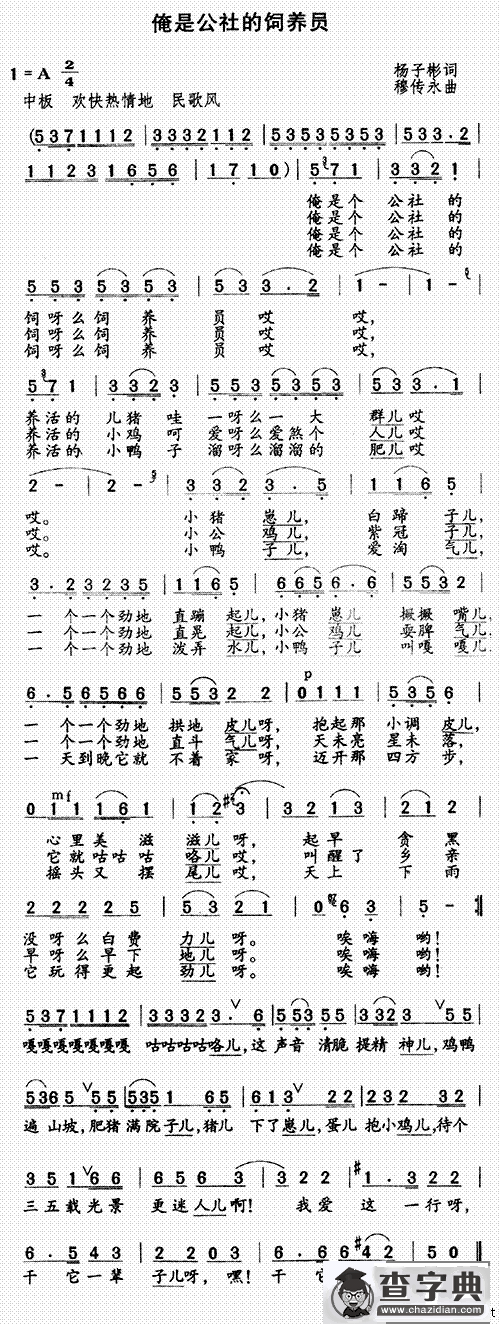 俺是公社的饲养员
1=A 2/4
杨子彬词
穆传永曲
中板 欢快热情地 民歌风
(5371112 | 3332112 | 53535353 | 533·2 |
11112231656 | 1710) | 571 | 3321 |
俺是个 公社的
俺是个 公社的
俺是个 公社的
5535353 | 533·2 | 1 - | 1 - |
饲呀么饲 养 员 哎 哎,
饲呀么饲 养 员 哎 哎,
饲呀么饲 养 员 哎 哎,
571 | 3323 | 5535353 | 533·1 |
养活的 儿猪哇 一呀么一 大 群儿哎
养活的 小鸡呵 爱呀么爱煞个 人儿哎
养活的 小鸭子 溜呀么溜溜的 肥儿哎
2 - | 2 - | 332 | 3·5 | 1165 |
哎。 小猪 崽儿, 白蹄 子儿,
哎。 小公 鸡儿, 紫冠 子儿,
哎。 小鸭 子儿, 爱洵 气儿,
3·23235 | 1165 | 6656·6 | 5532 |
一 个一个劲地 直蹦 起儿,小猪 崽儿 撅撅 嘴儿,
一 个一个劲地 直晃 起儿,小公 鸡儿 耍脾 气儿.
一 个一个劲地 泼弄 水儿,小鸭 子儿 叫嘎 嘎儿.
p
6·56566 | 55322 | 0111 | 5356 |
一 个一个劲地 拱地 皮儿呀, 抱起那 小调 皮儿,
一 个一个劲地 直斗 气儿呀, 天未亮 星未 落,
一 天到晚它就 不着 家 呀, 迈开那 四方 步,
mf
0111 | 161 | 12#3 | 3213 | 212 |
心里美 滋 滋儿呀, 起早 贪黑
它就咕咕 咕 咯儿哎, 叫醒了 乡亲
摇头又 摆 尾儿哎, 天上 下雨
22225 | 5321 | 063 | 5 - :||
没呀么白费 力儿呀。 唉嗨 哟!
早呀么早下 地儿呀。 唉嗨 哟!
它玩得更起 劲儿呀。 唉嗨 哟!
5371112 | 333323∨3·6 | 553555 | 3323∨55 |
嘎嘎嘎嘎嘎嘎嘎 咕咕咕咕咯儿,这 声音 清脆 提精 神儿,鸡鸭
5365∨55 | 5353165 | 613∨22 | 232 32 |
遍 山坡,肥猪 满院 子儿,猪儿 下了崽儿,蛋儿 抱小鸡儿,待个
351∨66 | 6563 | 322 | #1·322 |
三五载光景 更迷 人儿啊! 我爱 这 一行呀,
6·543 | 2203 | 6·66#42 | 50 ||
干 它一辈 子儿呀, 嘿! 干 它
查字典
www.chazidian.com
t